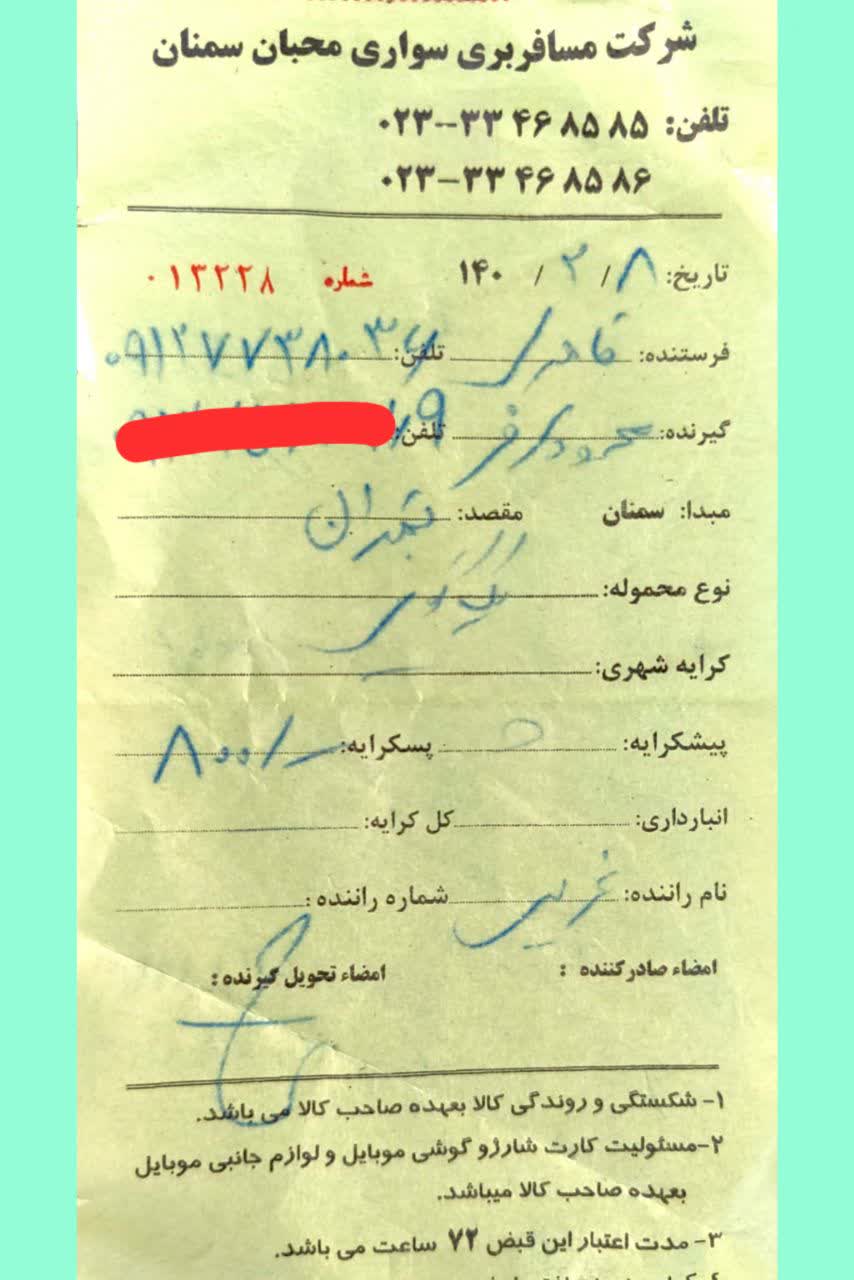 شرکت مسافربری سواری محبان سمنان
تلفن: ۰۲۳-۳۳ ۴۶ ۸۵ ۸۵
۰۲۳-۳۳ ۴۶ ۸۵ ۸۶
تاریخ: ۸ / ۳ / ۱۴۰ شماره ۰۱۳۲۲۸
فرستنده: قادری تلفن:
گیرنده: تلفن:
مبدا: سمنان مقصد: تهران
نوع محموله:
کرایه شهری:
پیشکرایه: پسکرایه: ۸۰۰/-
انبارداری: کل کرایه:
نام راننده: شماره راننده :
امضاء صادرکننده : امضاء تحویل گیرنده :
۱- شکستگی و روندگی کالا بعهده صاحب کالا می باشد.
۲-مسئولیت کارت شارژو گوشی موبایل و لوازم جانبی موبایل
بعهده صاحب کالا میباشد.
۳- مدت اعتبار این قبض ۷۲ ساعت می باشد.